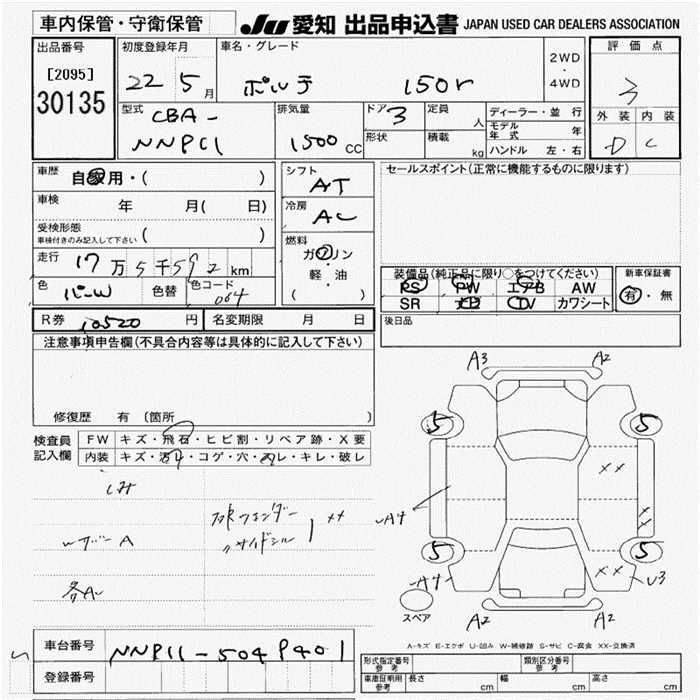 車内保管・守衛保管
JU 愛知 出品申込書 JAPAN USED CAR DEALERS ASSOCIATION
出品番号
[2095]
30135
初度登録年月
22 5 月
車名・グレード
ポルテ 150r
2WD
・
4WD
評価点
3
外装 内装
D C
型式
CBA-
NNP11
排気量
1500 CC
ドア 3
形状
定員 人
積載 kg
ディーラー・並行
モデル年式 年
ハンドル 左・右
車歴
自家用・( )
車検 年 月( 日)
受検形態
車検付きのみ記入して下さい ( )
走行 17万5千592km
色 パール 色替 色コード 064
シフト
AT
冷房
AC
燃料
ガソリン
軽・油
( )
セールスポイント(正常に機能するものに限ります)
装備品(純正品に限り○をつけてください)
PS PW エアB AW
SR ナビ TV カワシート
新車保証書
有・無
R券 10520 円 名変期限 月 日
後日品
注意事項申告欄(不具合内容等は具体的に記入して下さい)
修復歴 有 〔箇所 〕
検査員
記入欄
FW キズ・飛石・ヒビ割・リペア跡・X要
内装 キズ・汚レ・コゲ・穴・スレ・キレ・破レ
シミ
A
各A
フェンダー
〃サイドシル
××
A3 A2
5 5
××
A4
××
5 5
A4
××
U3
スペア
A2 A2
A-キズ E-エクボ U-凹み W-補修跡 S-サビ C-腐食 XX-交換済
車台番号 NNP11-5049401
登録番号
形式指定番号
参考
類別区分番号
参考
車庫証明用
参考
長さ cm 幅 cm 高さ cm